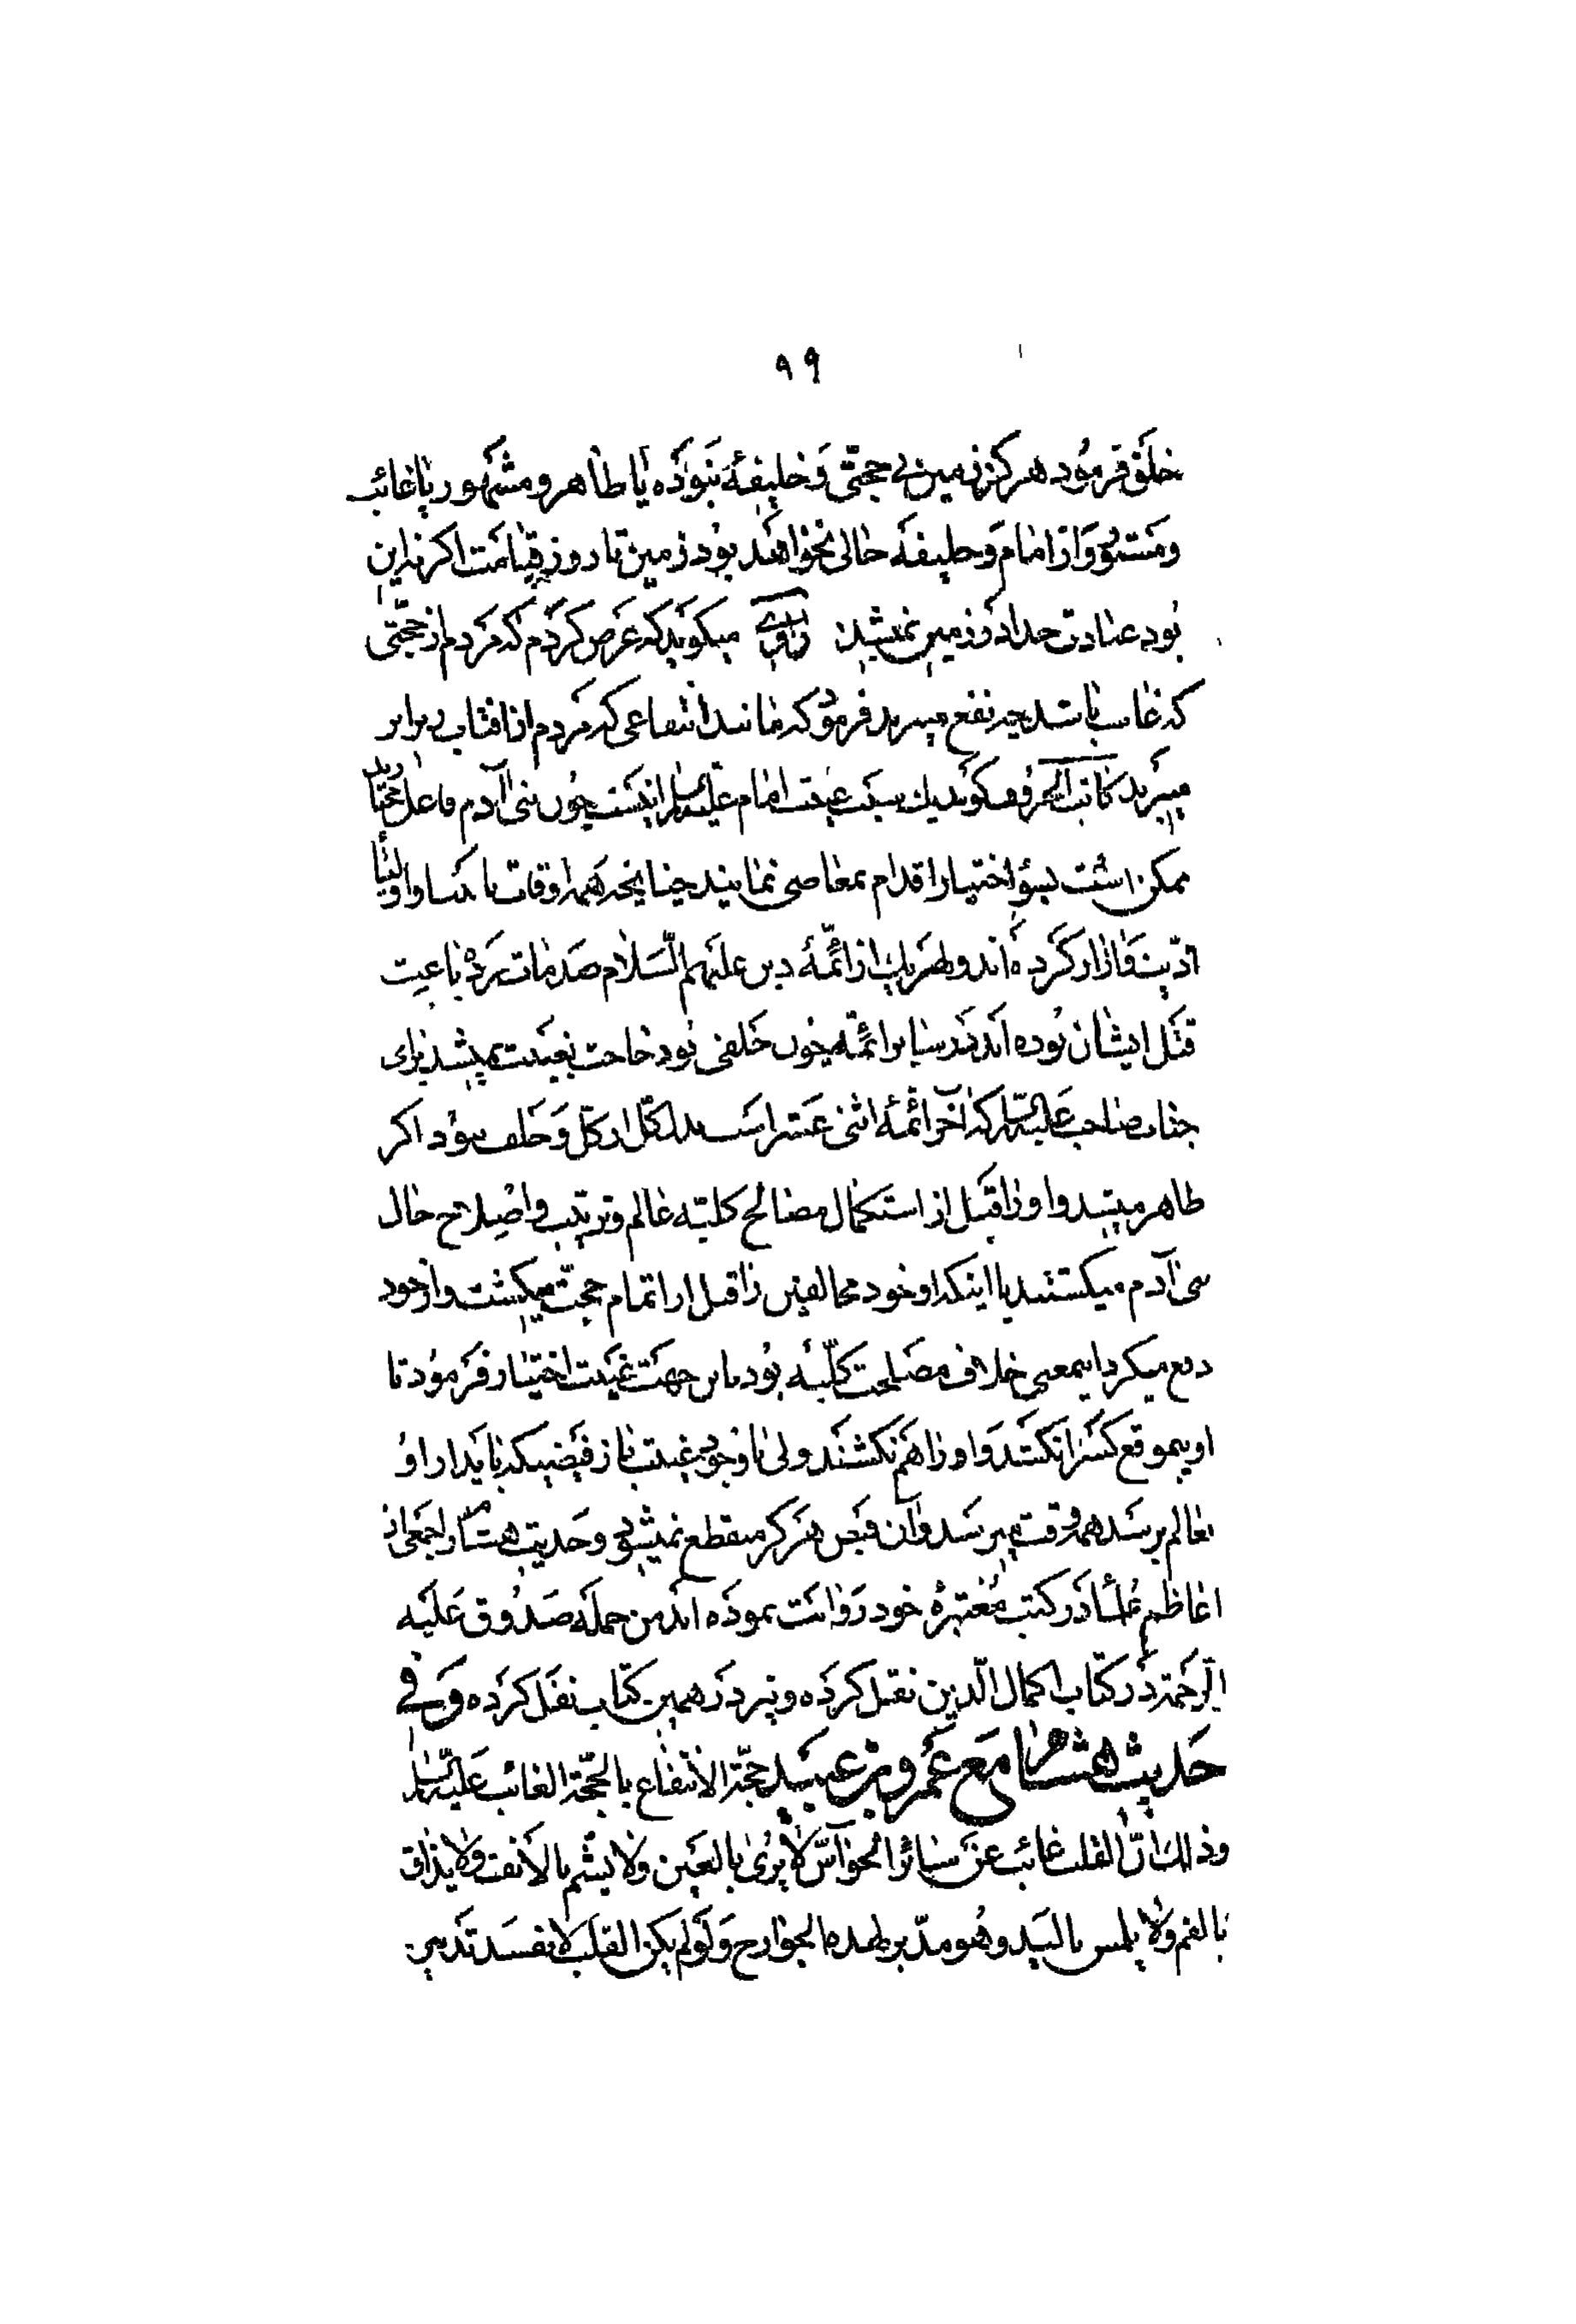 ۹۹
خلق فرمود هرکز زمین بی حجتی و خلیفهٔ نبوده یا ظاهر و مشهور یا غائب
و مستور و از امام و خلیفه خالی نخواهد بود زمین تا روز قیامت اکر نه این
بود عبادت خدا در زمین نمیشد راوی میکوید که عرض کردم که مردم از حجتی
که غایب باشد چه نفع میبرند فرمود که مانند انتفاعی که مردم از افتاب در ابر
میبرند کاتب الحروف کوید سبب غیبت امام علیه السلام اینست چون بنی آدم فاعل مختارند
ممکن است بسوء اختیار اقدام بمعاصی نمایند چنانچه همه اوقات با انبیا و اولیا
اذیت و ازار کرده اند و بهر یک از ائمهٔ دین علیهم السلام صدمات زده باعث
قتل ایشان بوده اند در سایر ائمه چون خلفی بود حاجت بغیبت نمیشد برای
جناب صاحب علیه السلام که آخر ائمهٔ اثنی عشر است بدل کل از کل و خلف نبود اکر
ظاهر میشد و او را قبل از استکمال مصالح کلیه عالم و ترتیب و اصلاح حال
بنی آدم میکشتند یا اینکه او خود مخالفین را قبل از اتمام حجت میکشت و از خود
دفع میکرد اینمعنی خلاف مصلحت کلیه بود باین جهت غیبت اختیار فرمود تا
او بیموقع کسی را نکشد و او را هم نکشند ولی با وجود غیبت باز فیضی که باید از او
بعالم برسد همه وقت میرسد و آن فیض هرکز منقطع نمیشود و حدیث هشام را جمعی از
اعاظم علما در کتب معتبرهٔ خود روایت نموده اند من جمله صدوق علیه
الرحمة در کتاب اکمال الدین نقل کرده و نیز در همین کتاب نقل کرده و فی
حدیث هشام مع عمرو بن عبید حجة الانتفاع بالحجة الغائب علیه السلام
وذلک ان القلب غائب عن سائر الحواس لا یری بالعین ولا یشم بالانف ولا یذاق
بالفم ولا یلمس بالید وهو مدبر لهذه الجوارح ولو لم یکن القلب لانفسد تدبیر